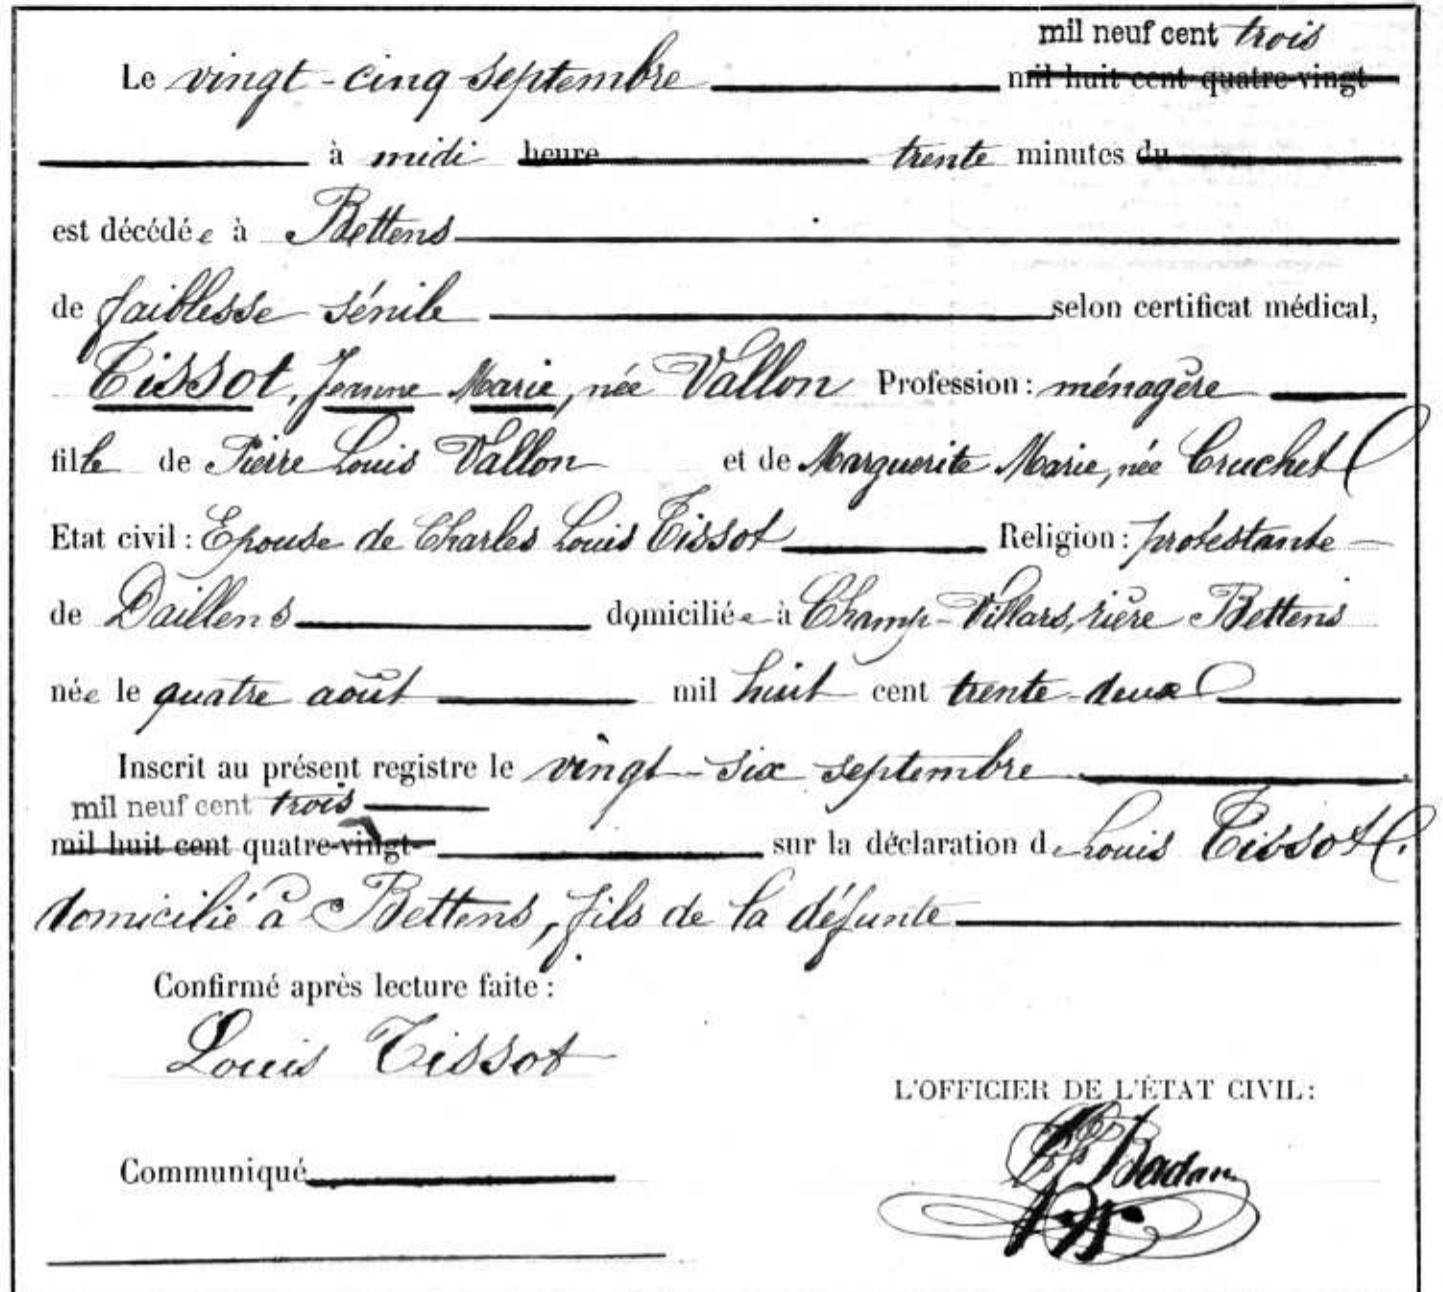 mil neuf cent trois
Le vingt-cinq septembre mil huit cent quatre-vingt
à midi heure trente minutes du
est décédée à Bettens
de faiblesse sénile selon certificat médical,
Tissot, Jeanne Marie, née Vallon Profession: ménagère
fille de Pierre Louis Vallon et de Marguerite Marie, née Cruchet
Etat civil: Epouse de Charles Louis Tissot Religion: protestante
de Daillens domiciliée à Champ-Villars, rière Bettens
née le quatre août mil huit cent trente-deux
Inscrit au présent registre le vingt-six septembre
mil neuf cent trois
mil huit cent quatre-vingt- sur la déclaration d Louis Tissot
domicilié à Bettens, fils de la défunte
Confirmé après lecture faite:
Louis Tissot
L'OFFICIER DE L'ÉTAT CIVIL:
Badan
Communiqué